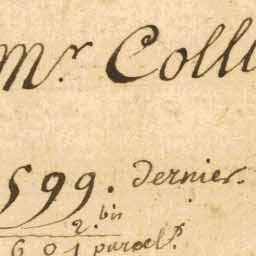 Mr Coll
599. dernier.
2. bis
601 parcel.s